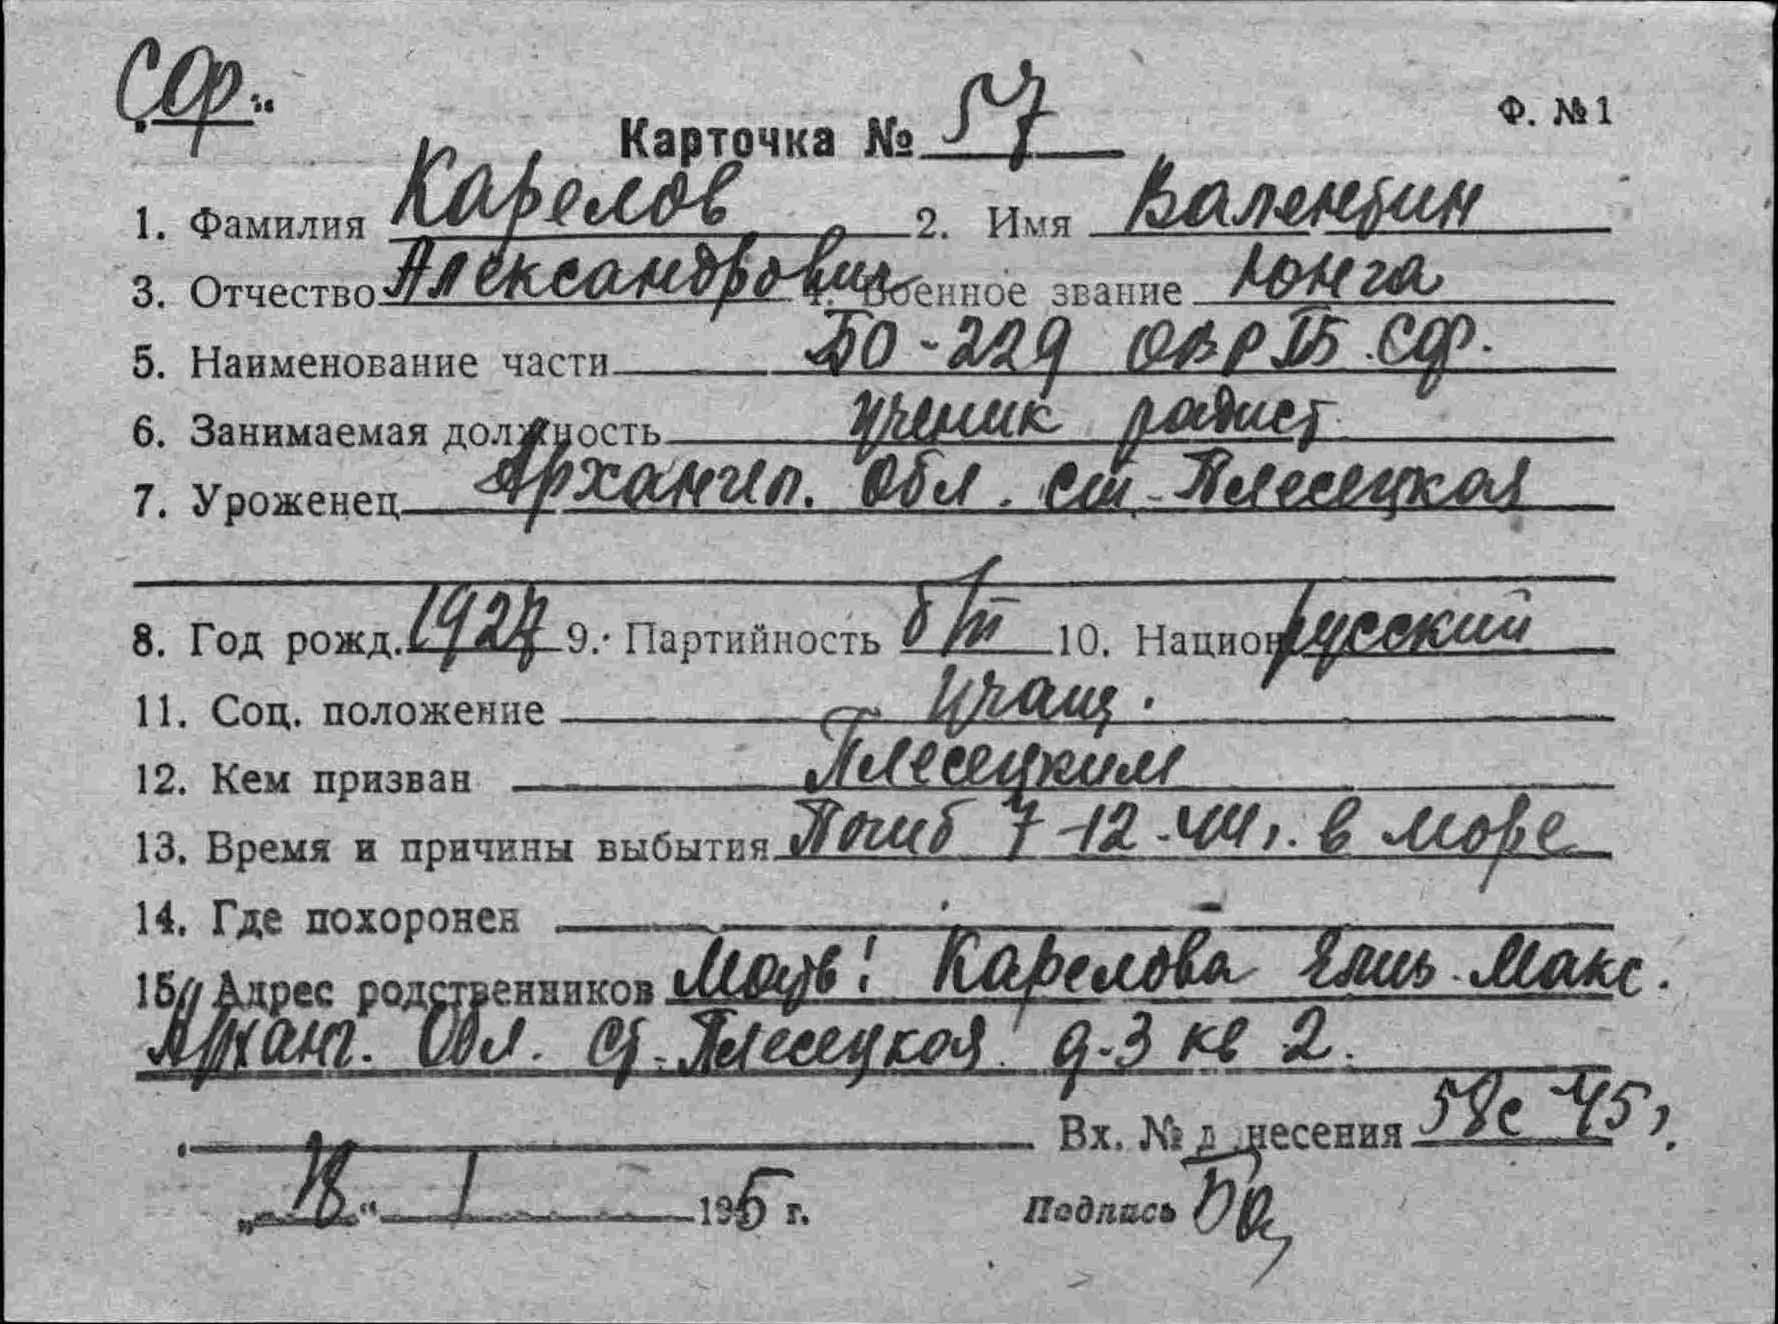 СФ.
Карточка № 57
Ф. №1
1. Фамилия Карелов 2. Имя Валентин
3. Отчество Александрович 4. Военное звание Юнга
5. Наименование части БО-229 ОВР ПБ. СФ.
6. Занимаемая должность ученик радист
7. Уроженец Архангел. обл. ст. Плесецкая
8. Год рожд. 1927 9. Партийность б/п 10. Национ русский
11. Соц. положение Учащ.
12. Кем призван Плесецким
13. Время и причины выбытия Погиб 7-12-44г. в море
14. Где похоронен -
15. Адрес родственников Мать: Карелова Елиз. Макс.
Арханг. Обл. ст. Плесецкая д-3 кв 2.
Вх. № д несения 58с 45г.
„18“ I 1945 г. Подпись